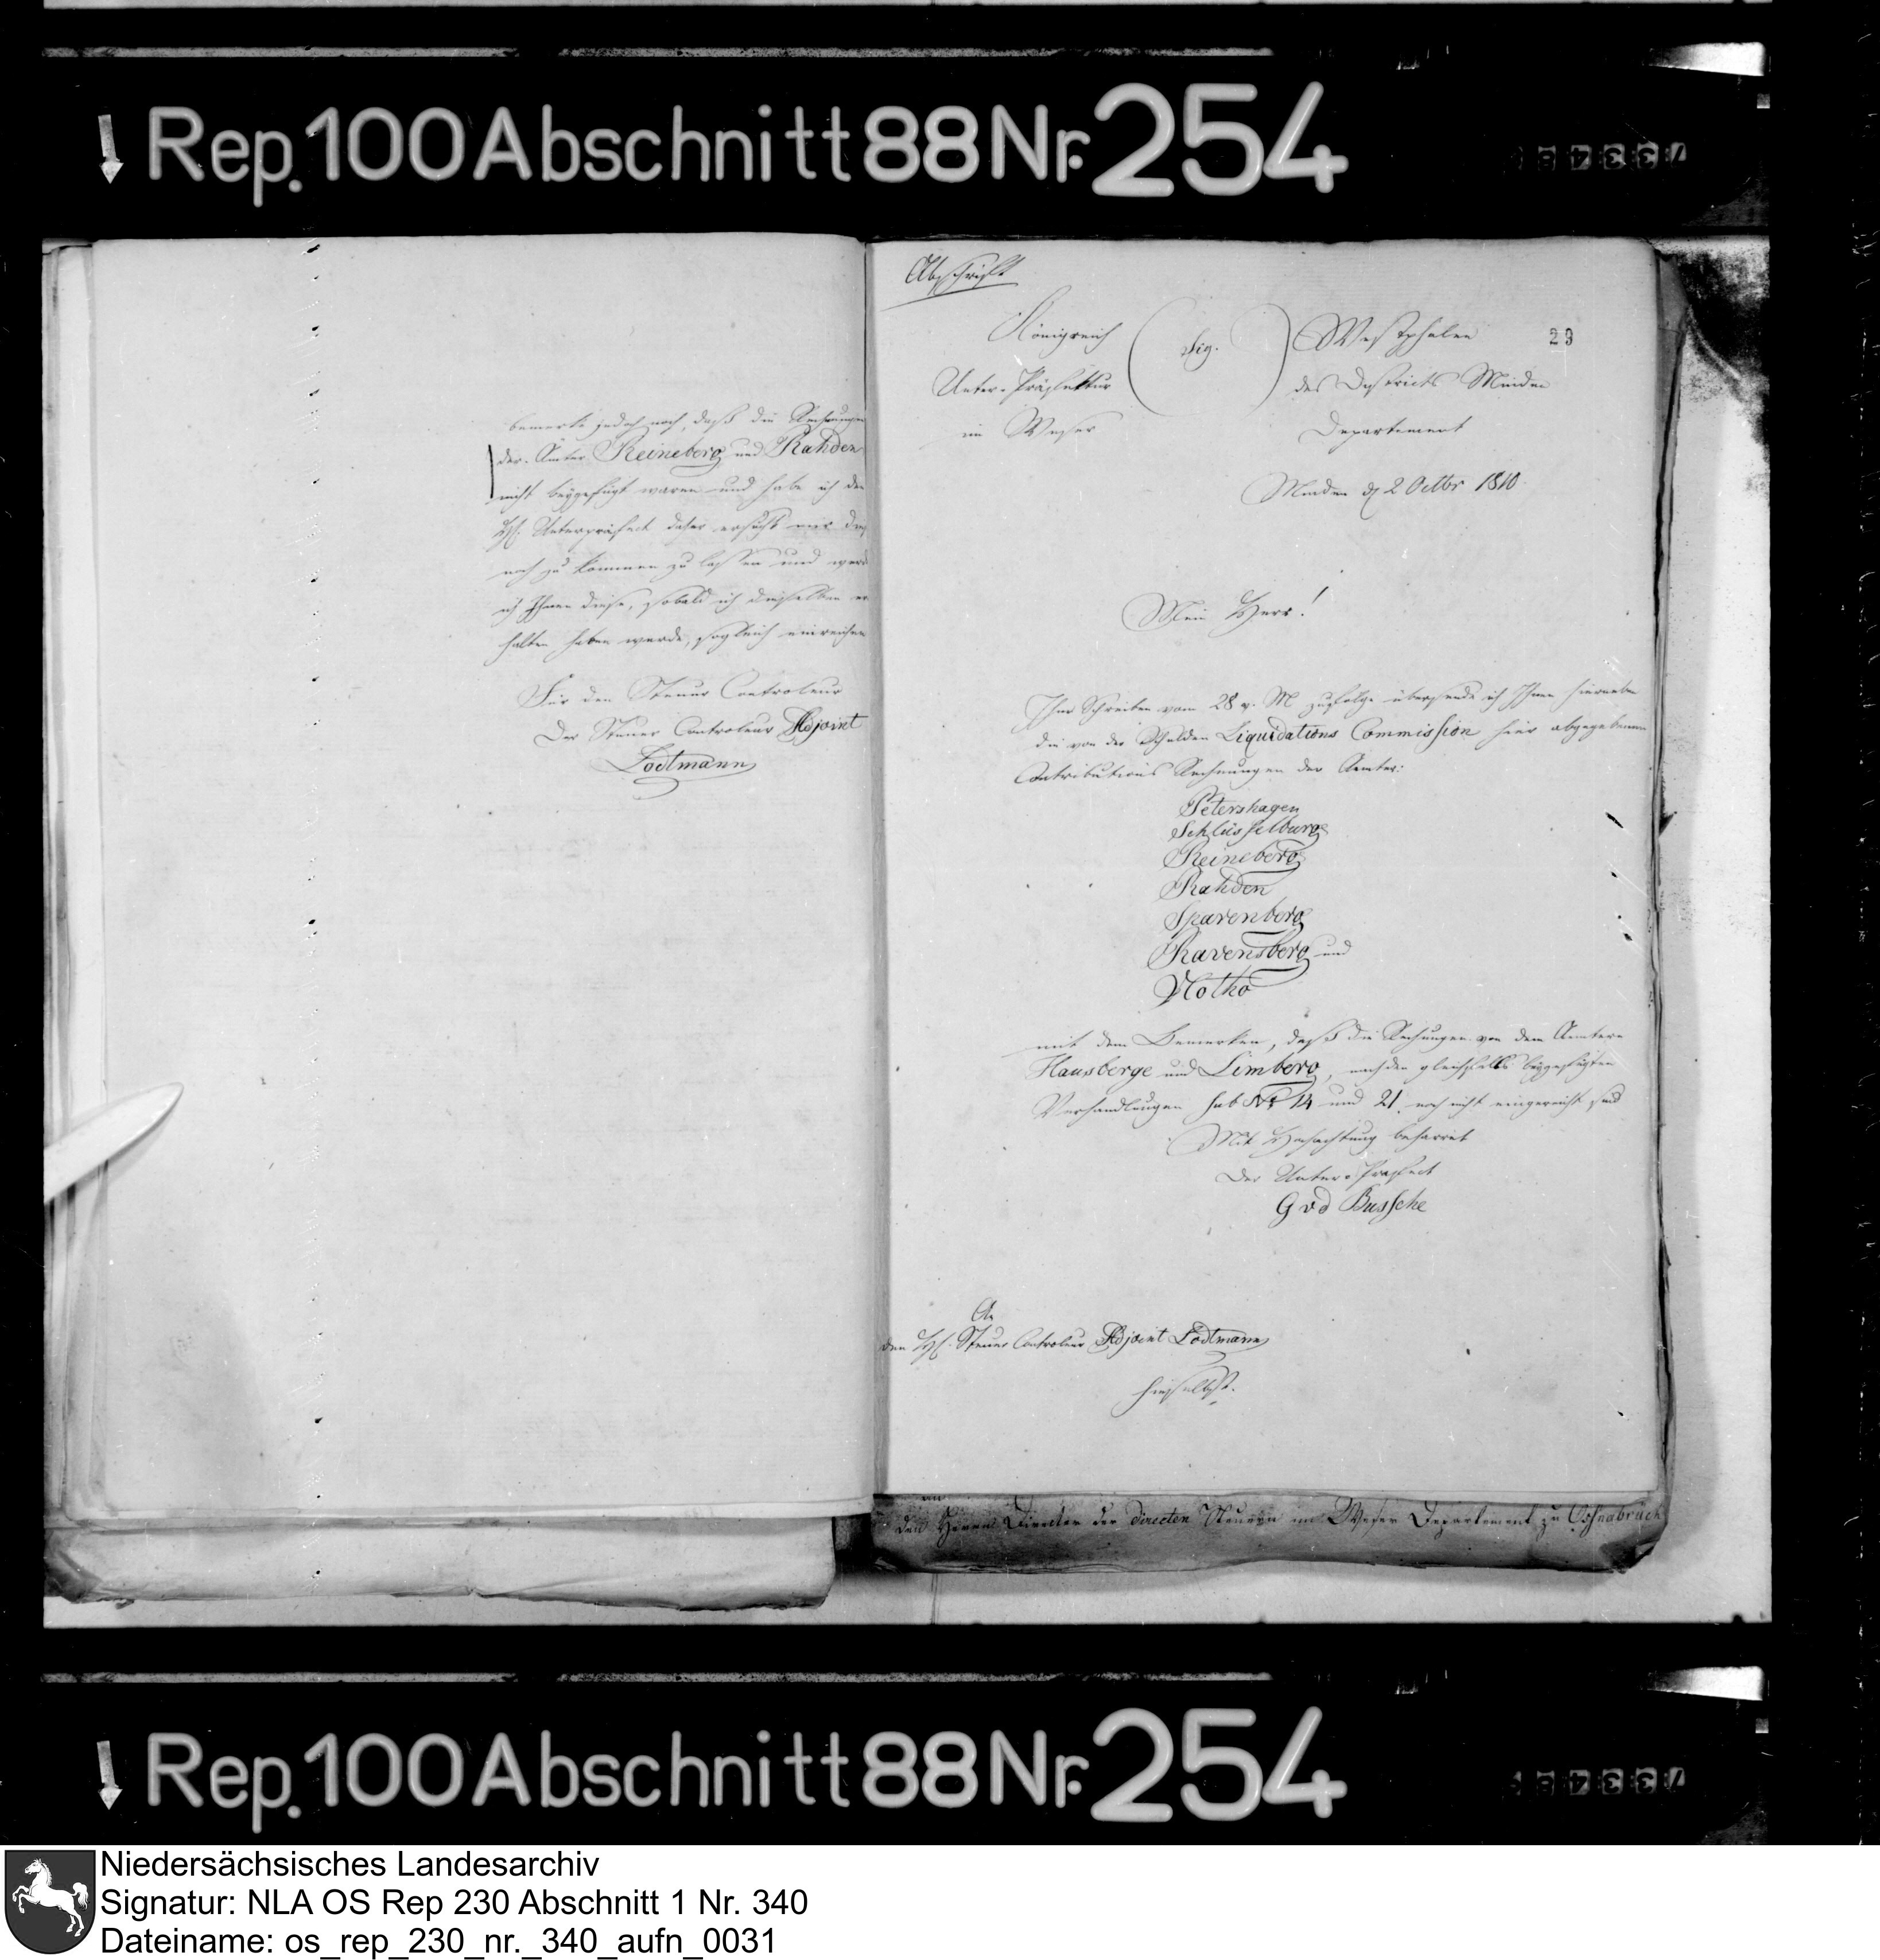 Rep. 100 Abschnitt 88 Nr. 254
bemerke jedoch noch, daß die Rechnungen
der Ämter Reineberg und Rahden
nicht beygefügt waren und habe ich den
H. Unterpräfect daher ersucht mir diese
noch zu kommen zu lassen und werde
ich Ihnen diese, sobald ich dieselben er
halten haben werde, sogleich einreichen
Für den Steuer Controleur
Der Steuer Controleur Adjoint
Lodtmann
Abschrift
29
Königreich (Sig.) Westphalen
Unter-Präfektur des Districts Minden
im Weser Departement
Minden d 2 Octbr 1810
Mein Herr!
Ihr Schreiben vom 28 v. M zufolge übersende ich Ihnen hierneben
die von der Schulden Liquidations Commission hier abgegebenen
Contributions Rechnungen der Aemter:
Petershagen
Schlüsselburg
Reineberg
Rahden
Sparenberg
Ravensberg und
Vlotho
mit dem Bemerken, daß die Rechnungen von den Aemtern
Hausberge und Limberg, nach den gleichfalls beygefügten
Verhandlungen sub Nr 14 und 21. noch nicht eingereicht sind
Mit Hochachtung beharret
Der Unter-Praefect
G v d Bussche
An
den H. Steuer Controleur Adjoint Lodtmann
hieselbst.
an
den Herrn Director der directen Steuern im Weser Departement zu Osnabrück
Rep. 100 Abschnitt 88 Nr. 254
Niedersächsisches Landesarchiv
Signatur: NLA OS Rep 230 Abschnitt 1 Nr. 340
Dateiname: os_rep_230_nr._340_aufn_0031